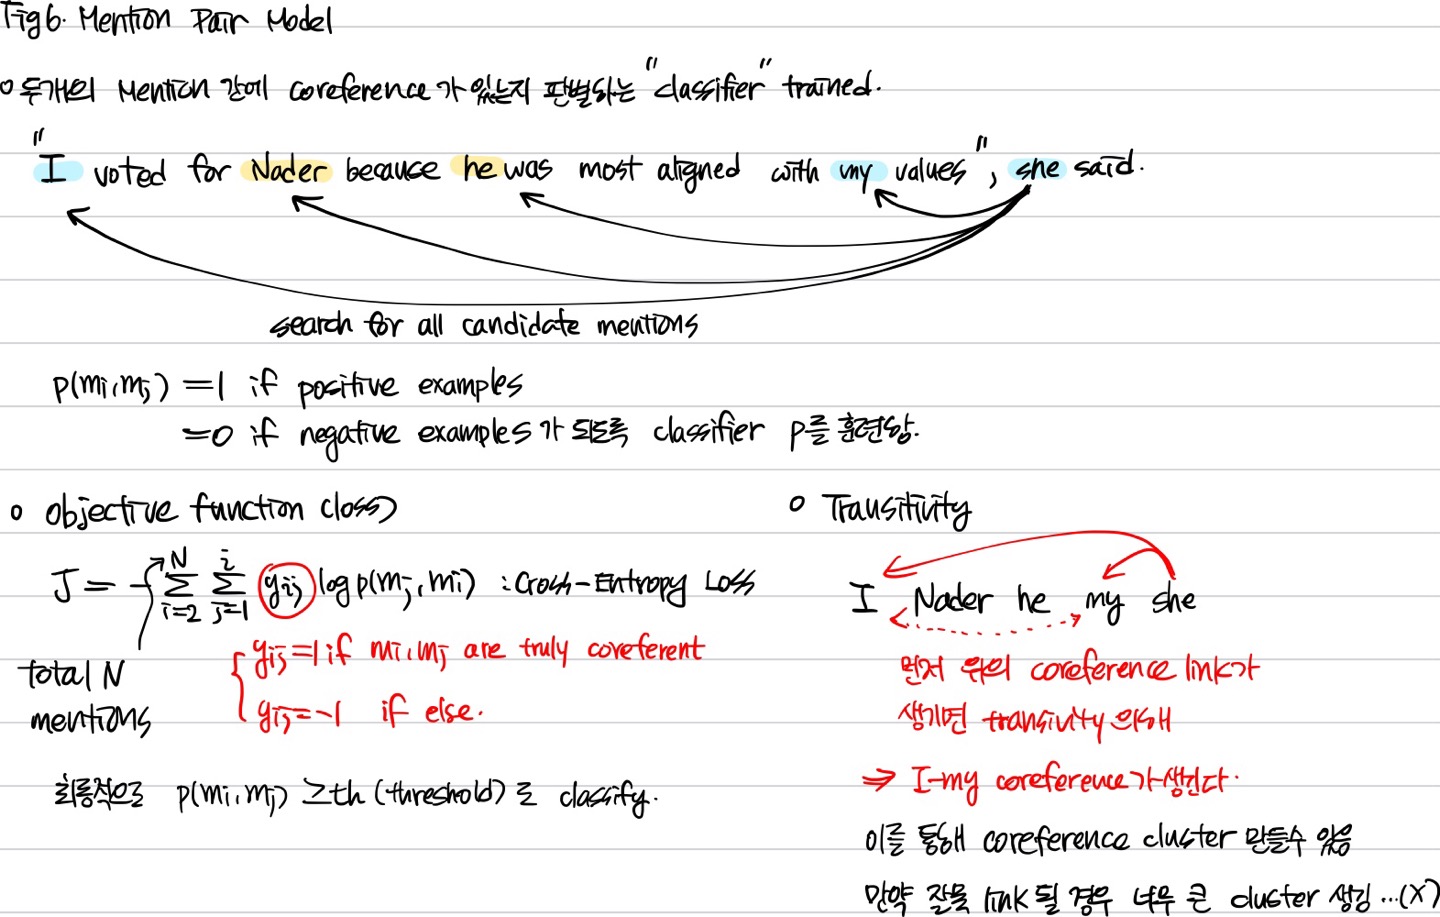 Fig 6. Mention Pair Model
o 두개의 Mention 간에 coreference가 있는지 판별하는 "classifier" trained.
"I voted for Nader because he was most aligned with my values", she said.
search for all candidate mentions
p(mi,mj) =1 if positive examples
=0 if negative examples가 되도록 classifier p를 훈련함.
o objective function (loss)
J = -∑_{i=2}^{N} ∑_{j=1}^{i} yij log p(mj, mi) : Cross-Entropy Loss
total N
mentions
yij=1 if mi,mj are truly coreferent
yij=-1 if else.
최종적으로 p(mi,mj) ≥th (threshold)로 classify.
o Transitivity
I Nader he my she
먼저 위의 coreference link가
생기면 transivity 의해
⇒ I-my coreference가 생긴다.
이를 통해 coreference cluster 만들수 있음
만약 잘못 link 될 경우 너무 큰 cluster 생김 ...(X)